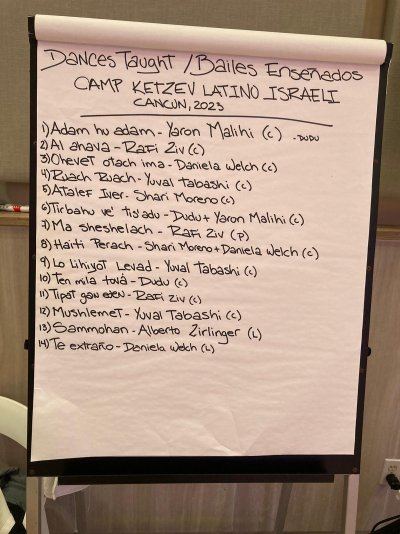 Dances Taught / Bailes Enseñados
CAMP KETZEV LATINO ISRAELI
CANCÚN, 2023
1) Adam hu adam - Yaron Malihi (c) - DUDU
2) Al ahava - Rafi Ziv (c)
3) Ohevet otach ima - Daniela Welch (c)
4) Ruach Ruach - Yuval Tabashi (c)
5) Atalef Iver - Shari Moreno (c)
6) Tirbahu ve' tis'adu - Dudu + Yaron Malihi (c)
7) Ma sheshelach - Rafi Ziv (p)
8) Haiti Perach - Shari Moreno + Daniela Welch (c)
9) Lo Lihiyot Levad - Yuval Tabashi (c)
10) Ten mila tová - Dudu (c)
11) Tipat gan eden - Rafi Ziv (c)
12) Mushlemet - Yuval Tabashi (c)
13) Sammohan - Alberto Zirlinger (L)
14) Te extraño - Daniela Welch (L)